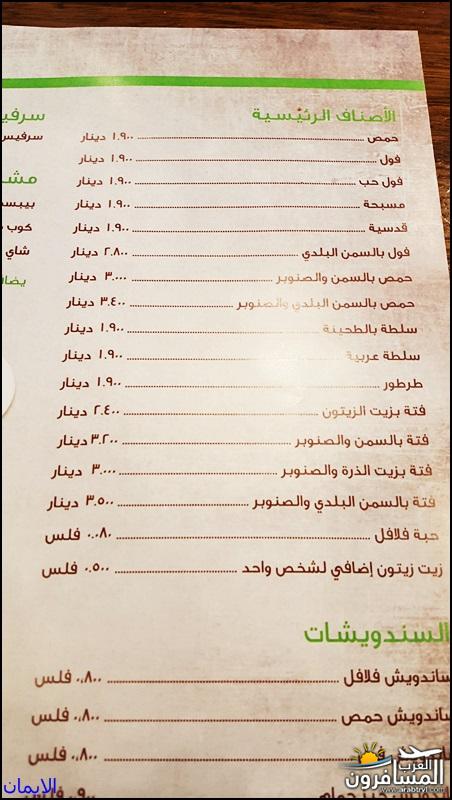 الأصناف الرئيسية
حمص ١,٩٠٠ دينار
فول ١,٩٠٠ دينار
فول حب ١,٩٠٠ دينار
مسبحة ١,٩٠٠ دينار
قدسية ١,٩٠٠ دينار
فول بالسمن البلدي ٢,٨٠٠ دينار
حمص بالسمن والصنوبر ٣,٠٠٠ دينار
حمص بالسمن البلدي والصنوبر ٣,٤٠٠ دينار
سلطة بالطحينة ١,٩٠٠ دينار
سلطة عربية ١,٩٠٠ دينار
طرطور ١,٩٠٠ دينار
فتة بزيت الزيتون ٢,٤٠٠ دينار
فتة بالسمن والصنوبر ٣,٢٠٠ دينار
فتة بزيت الذرة والصنوبر ٣,٠٠٠ دينار
فتة بالسمن البلدي والصنوبر ٣,٥٠٠ دينار
حبة فلافل ٠,٠٨٠ فلس
زيت زيتون إضافي لشخص واحد ٠,٥٠٠ فلس
السندويشات
ساندويش فلافل ٠,٨٠٠ فلس
ساندويش حمص ٠,٨٠٠ فلس
٠,٨٠٠ فلس
سرفيس
كوب
شاي
العرب
المسافرون
www.arabtrvl.com
الايمان